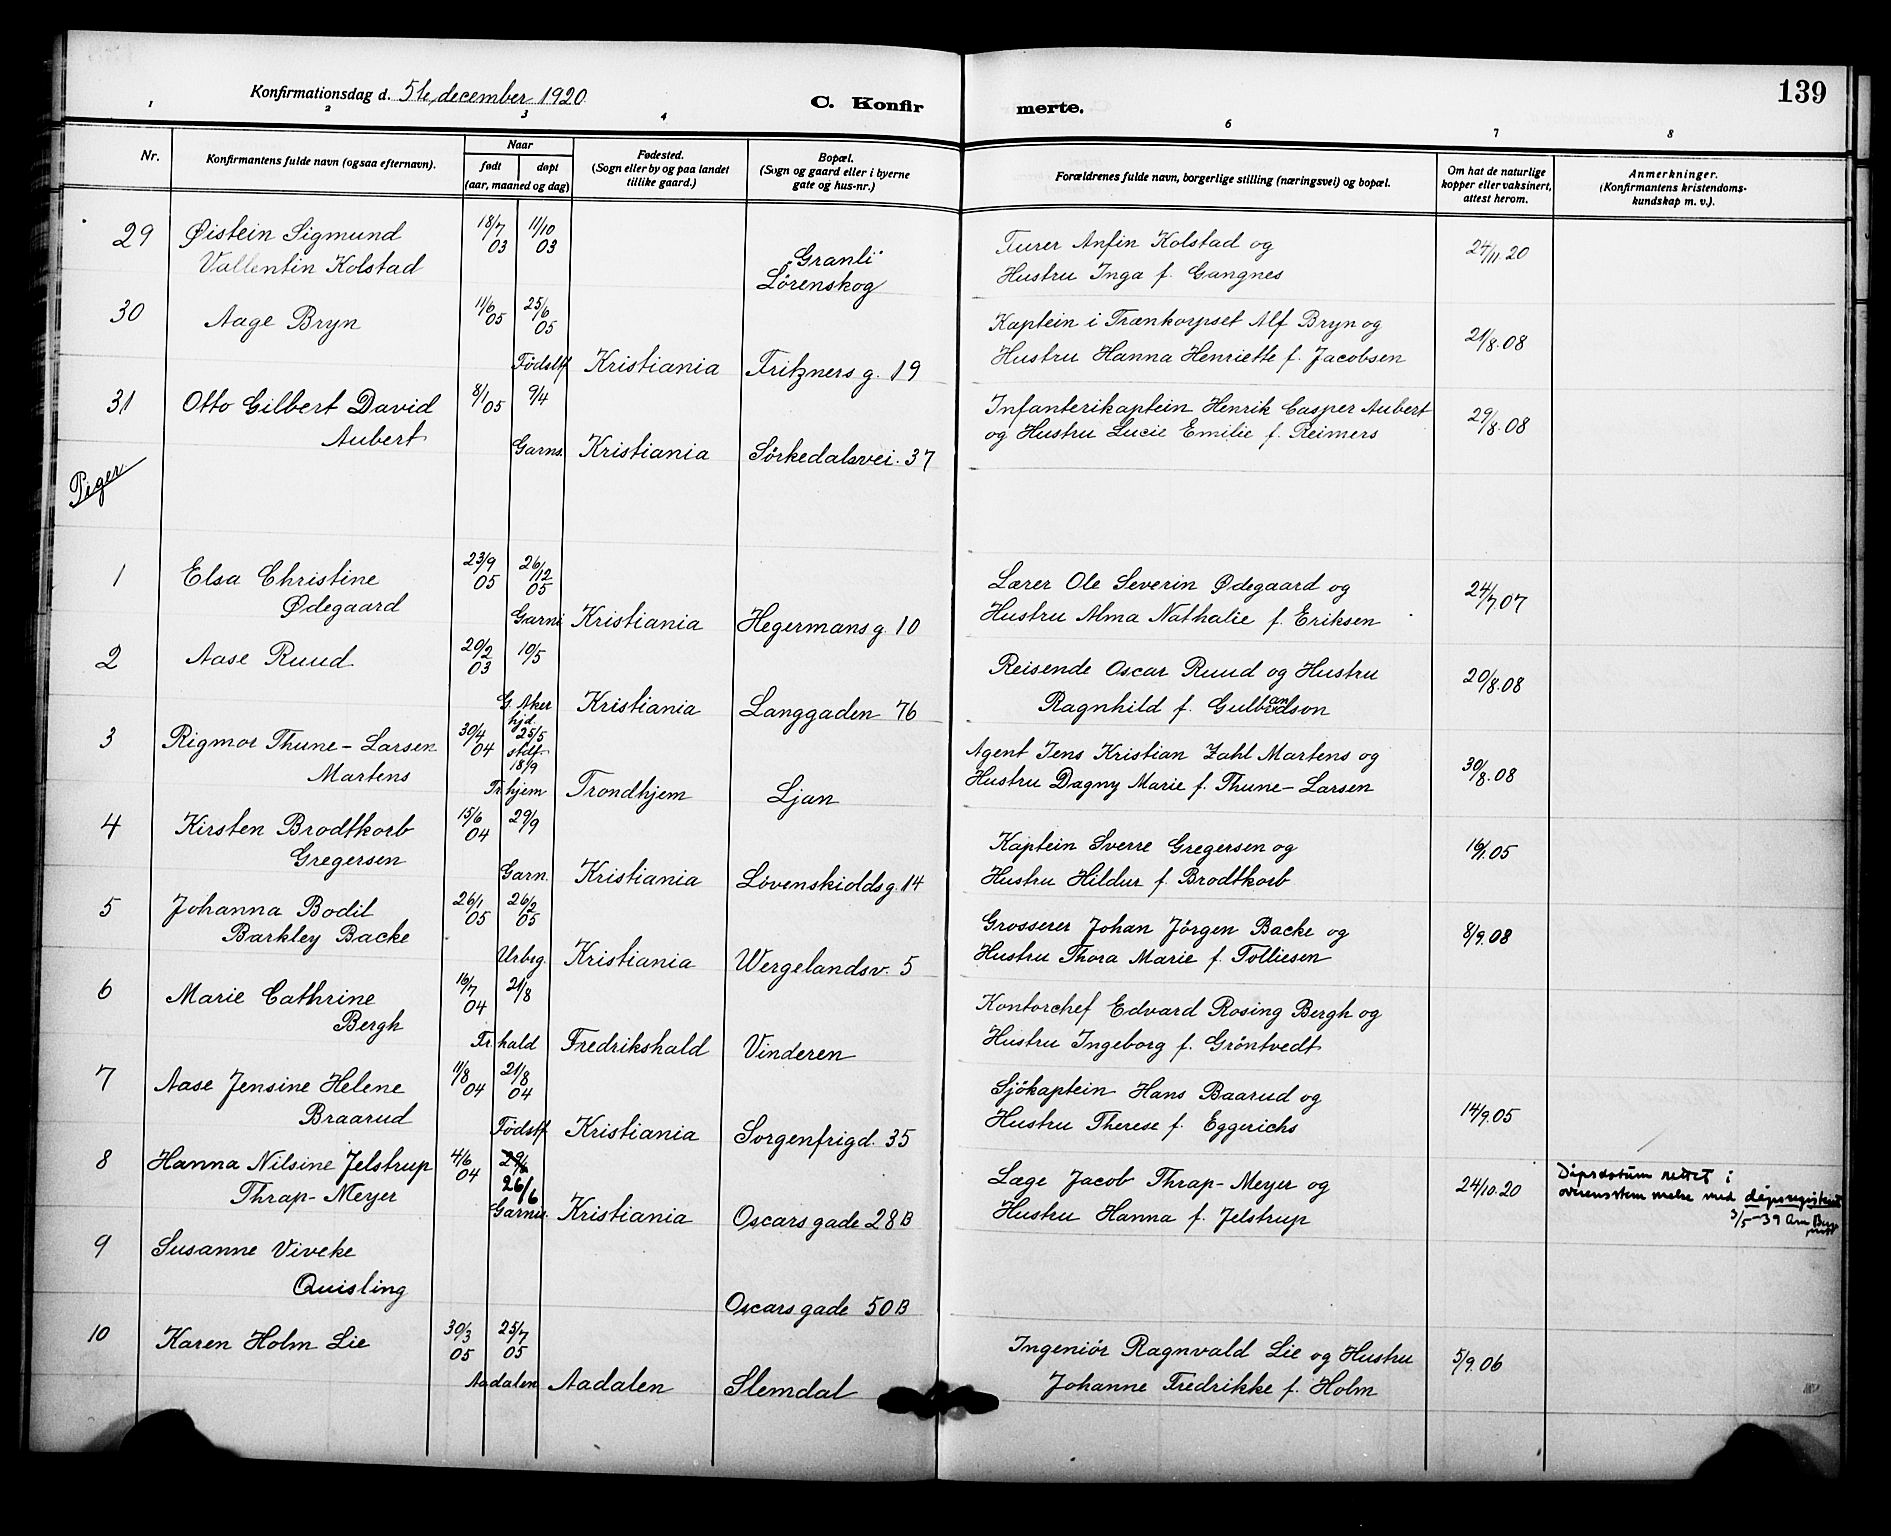 139
Konfirmationsdag d. 5te december 1920
C. Konfirmerte.
1 2 3 4 6 7 8
Nr.
Konfirmantens fulde navn (ogsaa efternavn).
Naar
født døpt
(aar, maaned og dag)
Fødested.
(Sogn eller by og paa landet
tillike gaard.)
Bopæl.
(Sogn og gaard eller i byerne
gate og hus-nr.)
Forældrenes fulde navn, borgerlige stilling (næringsvei) og bopæl.
Om hat de naturlige
kopper eller vaksinert,
attest herom.
Anmerkninger.
(Konfirmantens kristendoms-
kundskap m. v.).
29 Øistein Sigmund 18/7 03 11/10 03 Furer Anfin Kolstad og 24/11.20
Vallentin Kolstad "Granli" Lørenskog Hustru Inga f. Gangnes
30 Aage Bryn 11/6 05 25/6 05 Kaptein i Trænkorpset Alf Bryn og 21/8.08
Fødstf Kristiania Fritzners g. 19 Hustru Hanna Henriette f. Jacobsen
31 Otto Gilbert David 8/1 05 9/4 Infanterikaptein Henrik Casper Aubert 29/8.08
Aubert Garns. Kristiania Sørkedalsvei. 37 og Hustru Lucie Emilie f. Reimers
Piger
1 Elsa Christine 23/9 05 26/12 05 Lærer Ole Severin Ødegaard og 24/7 07
Ødegaard Garni Kristiania Hegermans g. 10 Hustru Alma Nathalie f. Eriksen
2 Aase Ruud 20/2 03 10/5 Reisende Oscar Ruud og Hustru 20/8.08
G. Aker Kristiania Langgaden 76 Ragnhild f. Gulbrandson
3 Rigmor Thune-Larsen 30/4 04 hjd. 25/5 stdf. 18/9 Agent Jens Kristian Zahl Martens og 30/8.08
Martens Tr.hjem Trondhjem Ljan Hustru Dagny Marie f. Thune-Larsen
4 Kirsten Brodtkorb 15/6 04 29/9 Kaptein Sverre Gregersen og 16/1.05
Gregersen Garn. Kristiania Løvenskiolds g. 14 Hustru Hildur f. Brodtkorb
5 Johanna Bodil 26/1 05 26/2 05 Grosserer Johan Jørgen Backe og 8/9.08
Barkley Backe Urbsg. Kristiania Wergelandsv. 5 Hustru Thora Marie f. Tolliesen
6 Marie Cathrine 16/7 04 21/8 Kontorchef Edvard Rosing Bergh og
Bergh Fr.hald Fredrikshald Vinderen Hustru Ingeborg f. Grøntvedt
7 Aase Jensine Helene 11/8 04 21/8 04 Sjøkaptein Hans Baarud og 14/9.05
Braarud Fødstf Kristiania Sorgenfrigd. 35 Hustru Therese f. Eggerichs
8 Hanna Nilsine Jelstrup 4/6 04 29/6 Læge Jacob Thrap-Meyer og 24/10.20 Dåpsdatum rettet i
Thrap-Meyer 26/6 Garnis. Kristiania Oscars gade 28 B Hustru Hanna f. Jelstrup overensstemmelse med dåpsregisteret
3/5-39
9 Susanne Viveke
Quisling Oscars gade 50 B
10 Karen Holm Lie 30/3 05 25/7 05 Ingeniør Ragnvald Lie og Hustru 5/9.06
Aadalen Aadalen Slemdal Johanne Fredrikke f. Holm